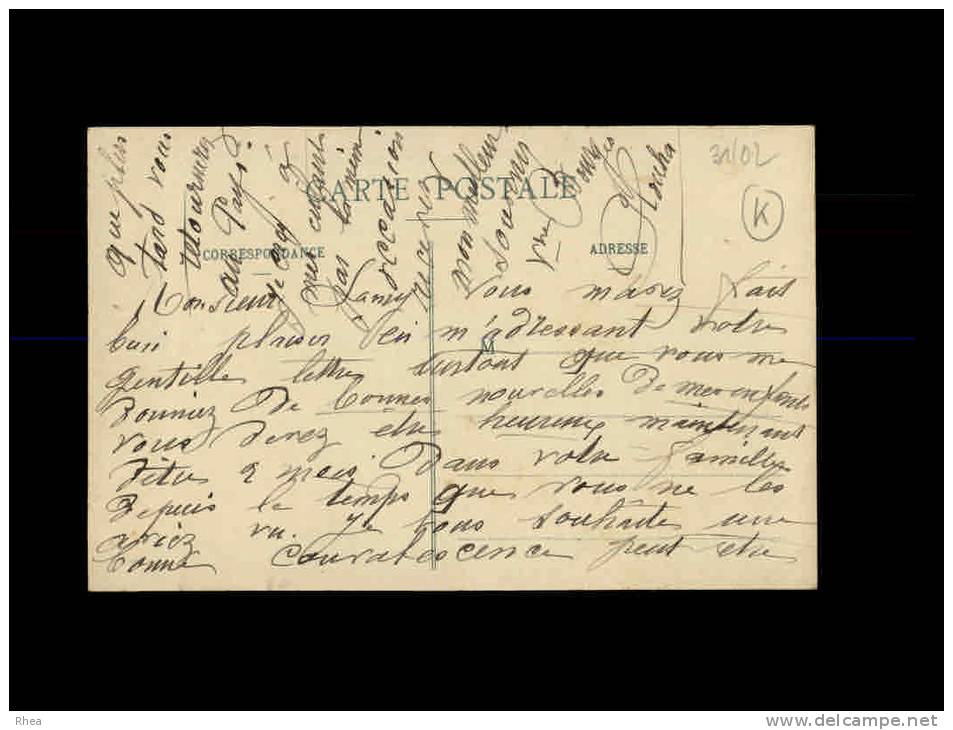 CARTE POSTALE
CORRESPONDANCE
ADRESSE
31/02
K
Monsieur Lamy Vous m'avez fait
bien plaisir en m'adressant votre
gentille lettre surtout que vous me
donniez de bonnes nouvelles de mes enfants
vous devez etre heureux maintenant
d'etre 2 mois Dans votre famille
depuis le temps que vous ne les
aviez vu. je vous souhaite une
bonne convalescence peut etre
que plus
tard vous
retournerez
au Pays
je
par la meme
occasion
recevez
mon meilleur
souvenir
Vve
M
Rhea
www.delcampe.net